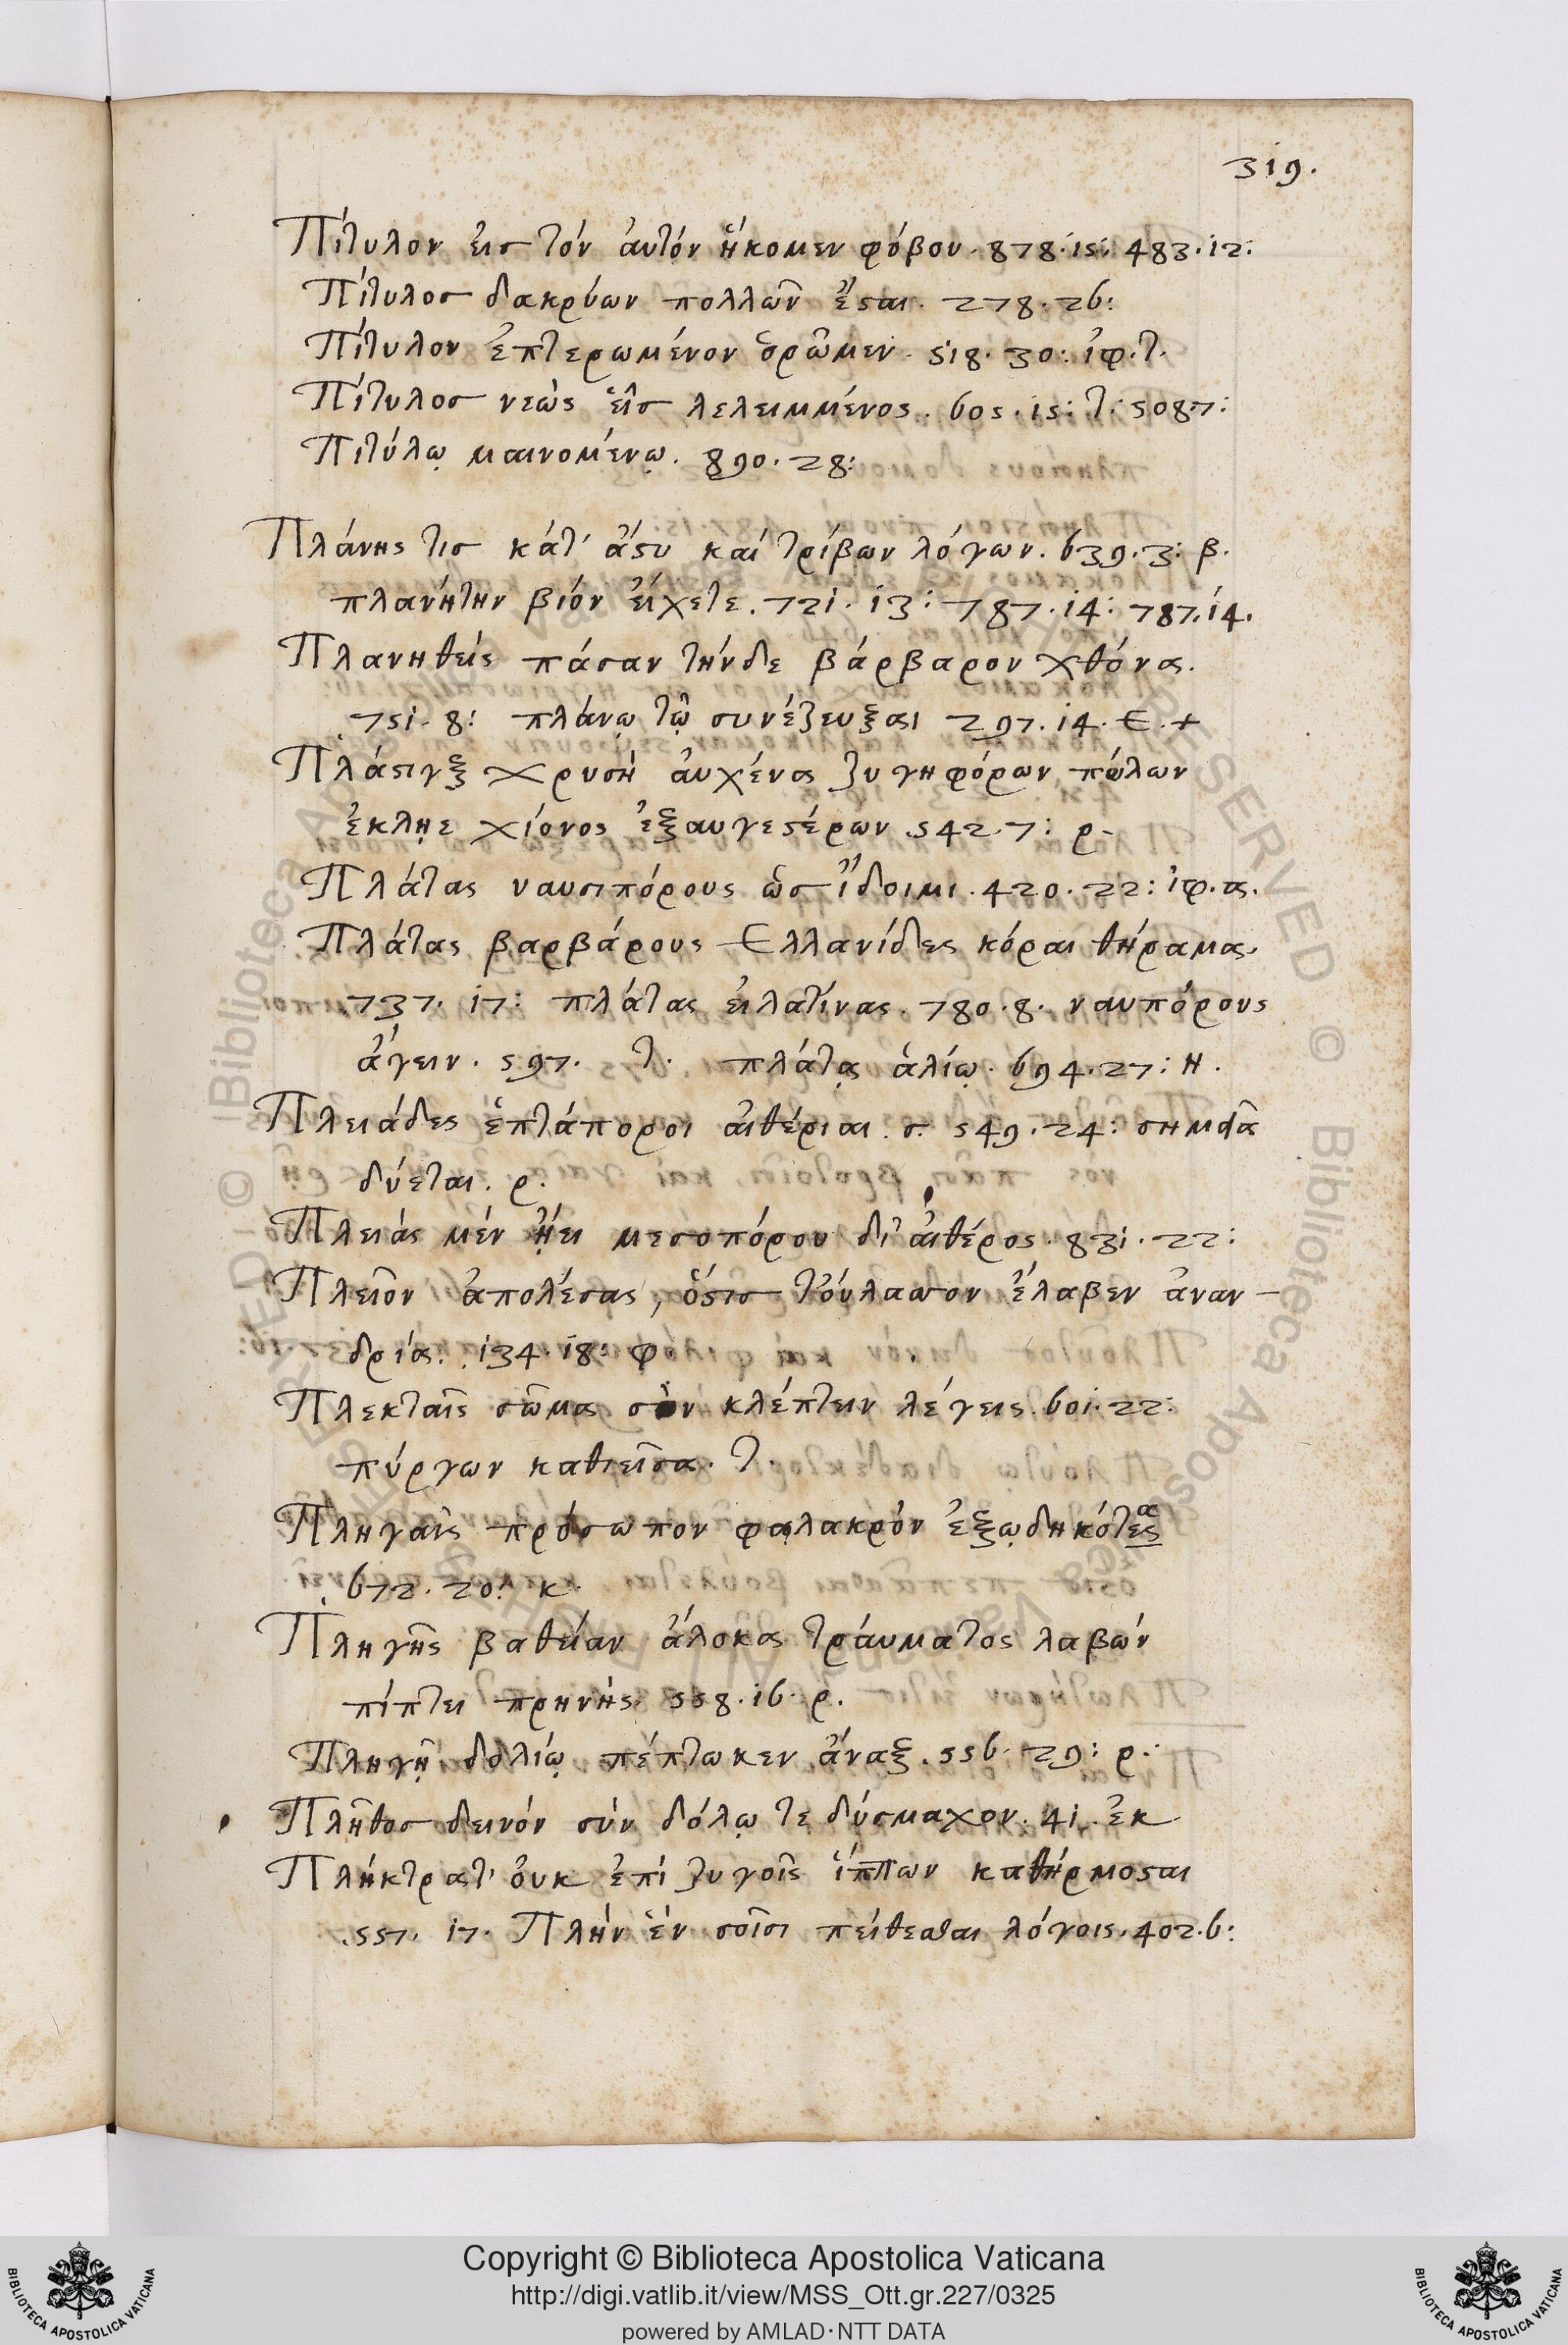 319.
Πίτυλον ἐισ τόν ἀυτόν ἥκομεν φόβου. 878. 15: 483. 12:
Πίτυλοσ δακρύων πολλῶν ἔϛαι. 278. 26:
Πίτυλον ἐπτερωμένον ὁρῶμεν. 518. 30: ἰφ. τ.
Πίτυλος νεώς ἐῖσ λελειμμένος. 605. 15: τ: 5087:
Πιτύλῳ μαινομένῳ. 890. 28:
Πλάνης τισ κάτ' ἄϛυ καί τρίβων λόγων. 639. 3: β.
πλανήτην βιόν ἔιχετε. 721. 13: 787. 14: 787. 14.
Πλανηθείς πάσαν τήνδε βάρβαρον χθόνα.
751. 8: πλάνῳ τῷ συνέζευξαι 297. 14. Ε. +
Πλάϛιγξ χρυσή ἀυχένα ζυγηφόρων πώλων
ἐκλῃε χίονος ἐξαυγεϛέρων. 542. 7: ρ-
Πλάτας ναυσιπόρους ὡσ ἴδοιμι. 420. 22: ἰφ. α.
Πλάτας βαρβάρους Ελλανίδες κόραι θήραμα.
737. 17: πλάτας ἐιλατίνας. 780. 8. ναυπόρους
ἄγειν. 597. τ. πλάτᾳ ἁλίῳ. 694. 27: Η.
Πλειάδες ἑπτάποροι ἀιθέριαι. σ. 549. 24:
δύεται. ρ.
Πλειάς μέν ᾔει μεσοπόρου δι' ἀιθέρος. 831. 22:
Πλεῖον ἀπολέσας, ὅϛισ τόυλασσον ἔλαβεν ἀναν-
δρία. 134. 18: φ
Πλεκταῖς σῶμα σὸν κλέπτειν λέγεις. 601. 22:
πύργων καθιεῖσα. τ.
Πληγαῖς πρόσωπον φαλακρόν ἐξῳδηκότες
672. 20: κ.
Πληγῆς βαθεῖαν ἄλοκα τράυματος λαβών
πίπτει πρηνής. 558. 16. ρ.
Πληγῇ δολίῳ πέπτωκεν ἄναξ. 556. 29: ρ.
Πλῆθοσ δεινόν σύν δόλῳ τε δύσμαχον. 41. ἐκ
Πλήκτρατ' ὀυκ ἐπί ζυγοῖς ἵππων καθήρμοϛαι
557. 17. Πλήν ἐν σοῖσι πείθεσθαι λόγοις. 402. 6:
Copyright © Biblioteca Apostolica Vaticana
http://digi.vatlib.it/view/MSS_Ott.gr.227/0325
powered by AMLAD·NTT DATA